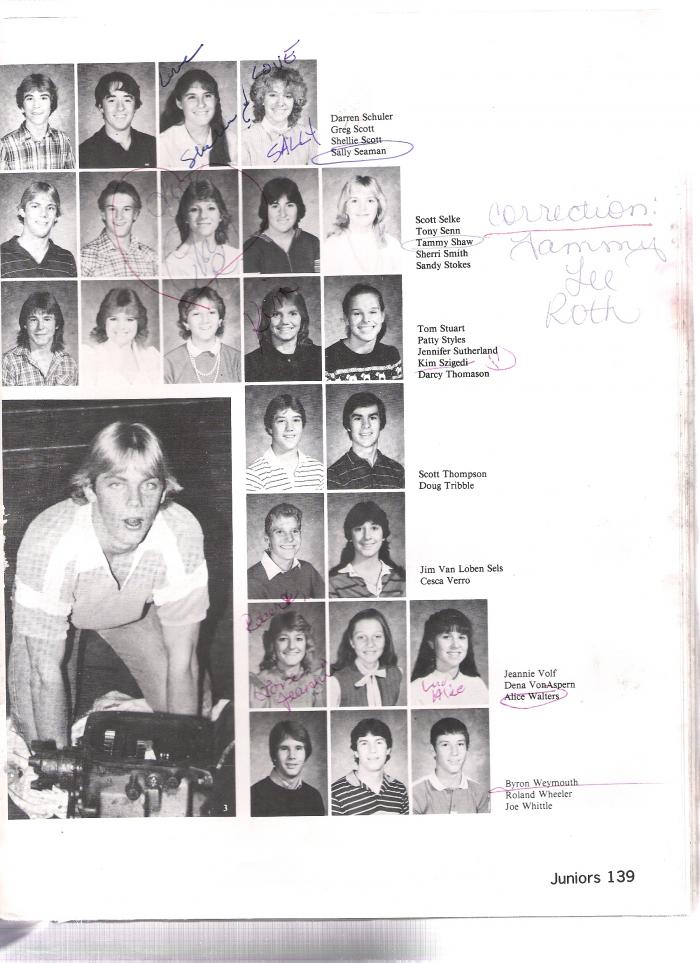 Love
Shellie
LOVE
SALLY
Darren Schuler
Greg Scott
Shellie Scott
Sally Seaman
Scott Selke
Tony Senn
Tammy Shaw
Sherri Smith
Sandy Stokes
correction:
Tammy
Lee
Roth
Kim
Tom Stuart
Patty Styles
Jennifer Sutherland
Kim Szigedi
Darcy Thomason
Scott Thompson
Doug Tribble
Jim Van Loben Sels
Cesca Verro
Love
Jeannie
Luv
Alice
Jeannie Volf
Dena VonAspern
Alice Walters
Byron Weymouth
Roland Wheeler
Joe Whittle
3
Juniors 139